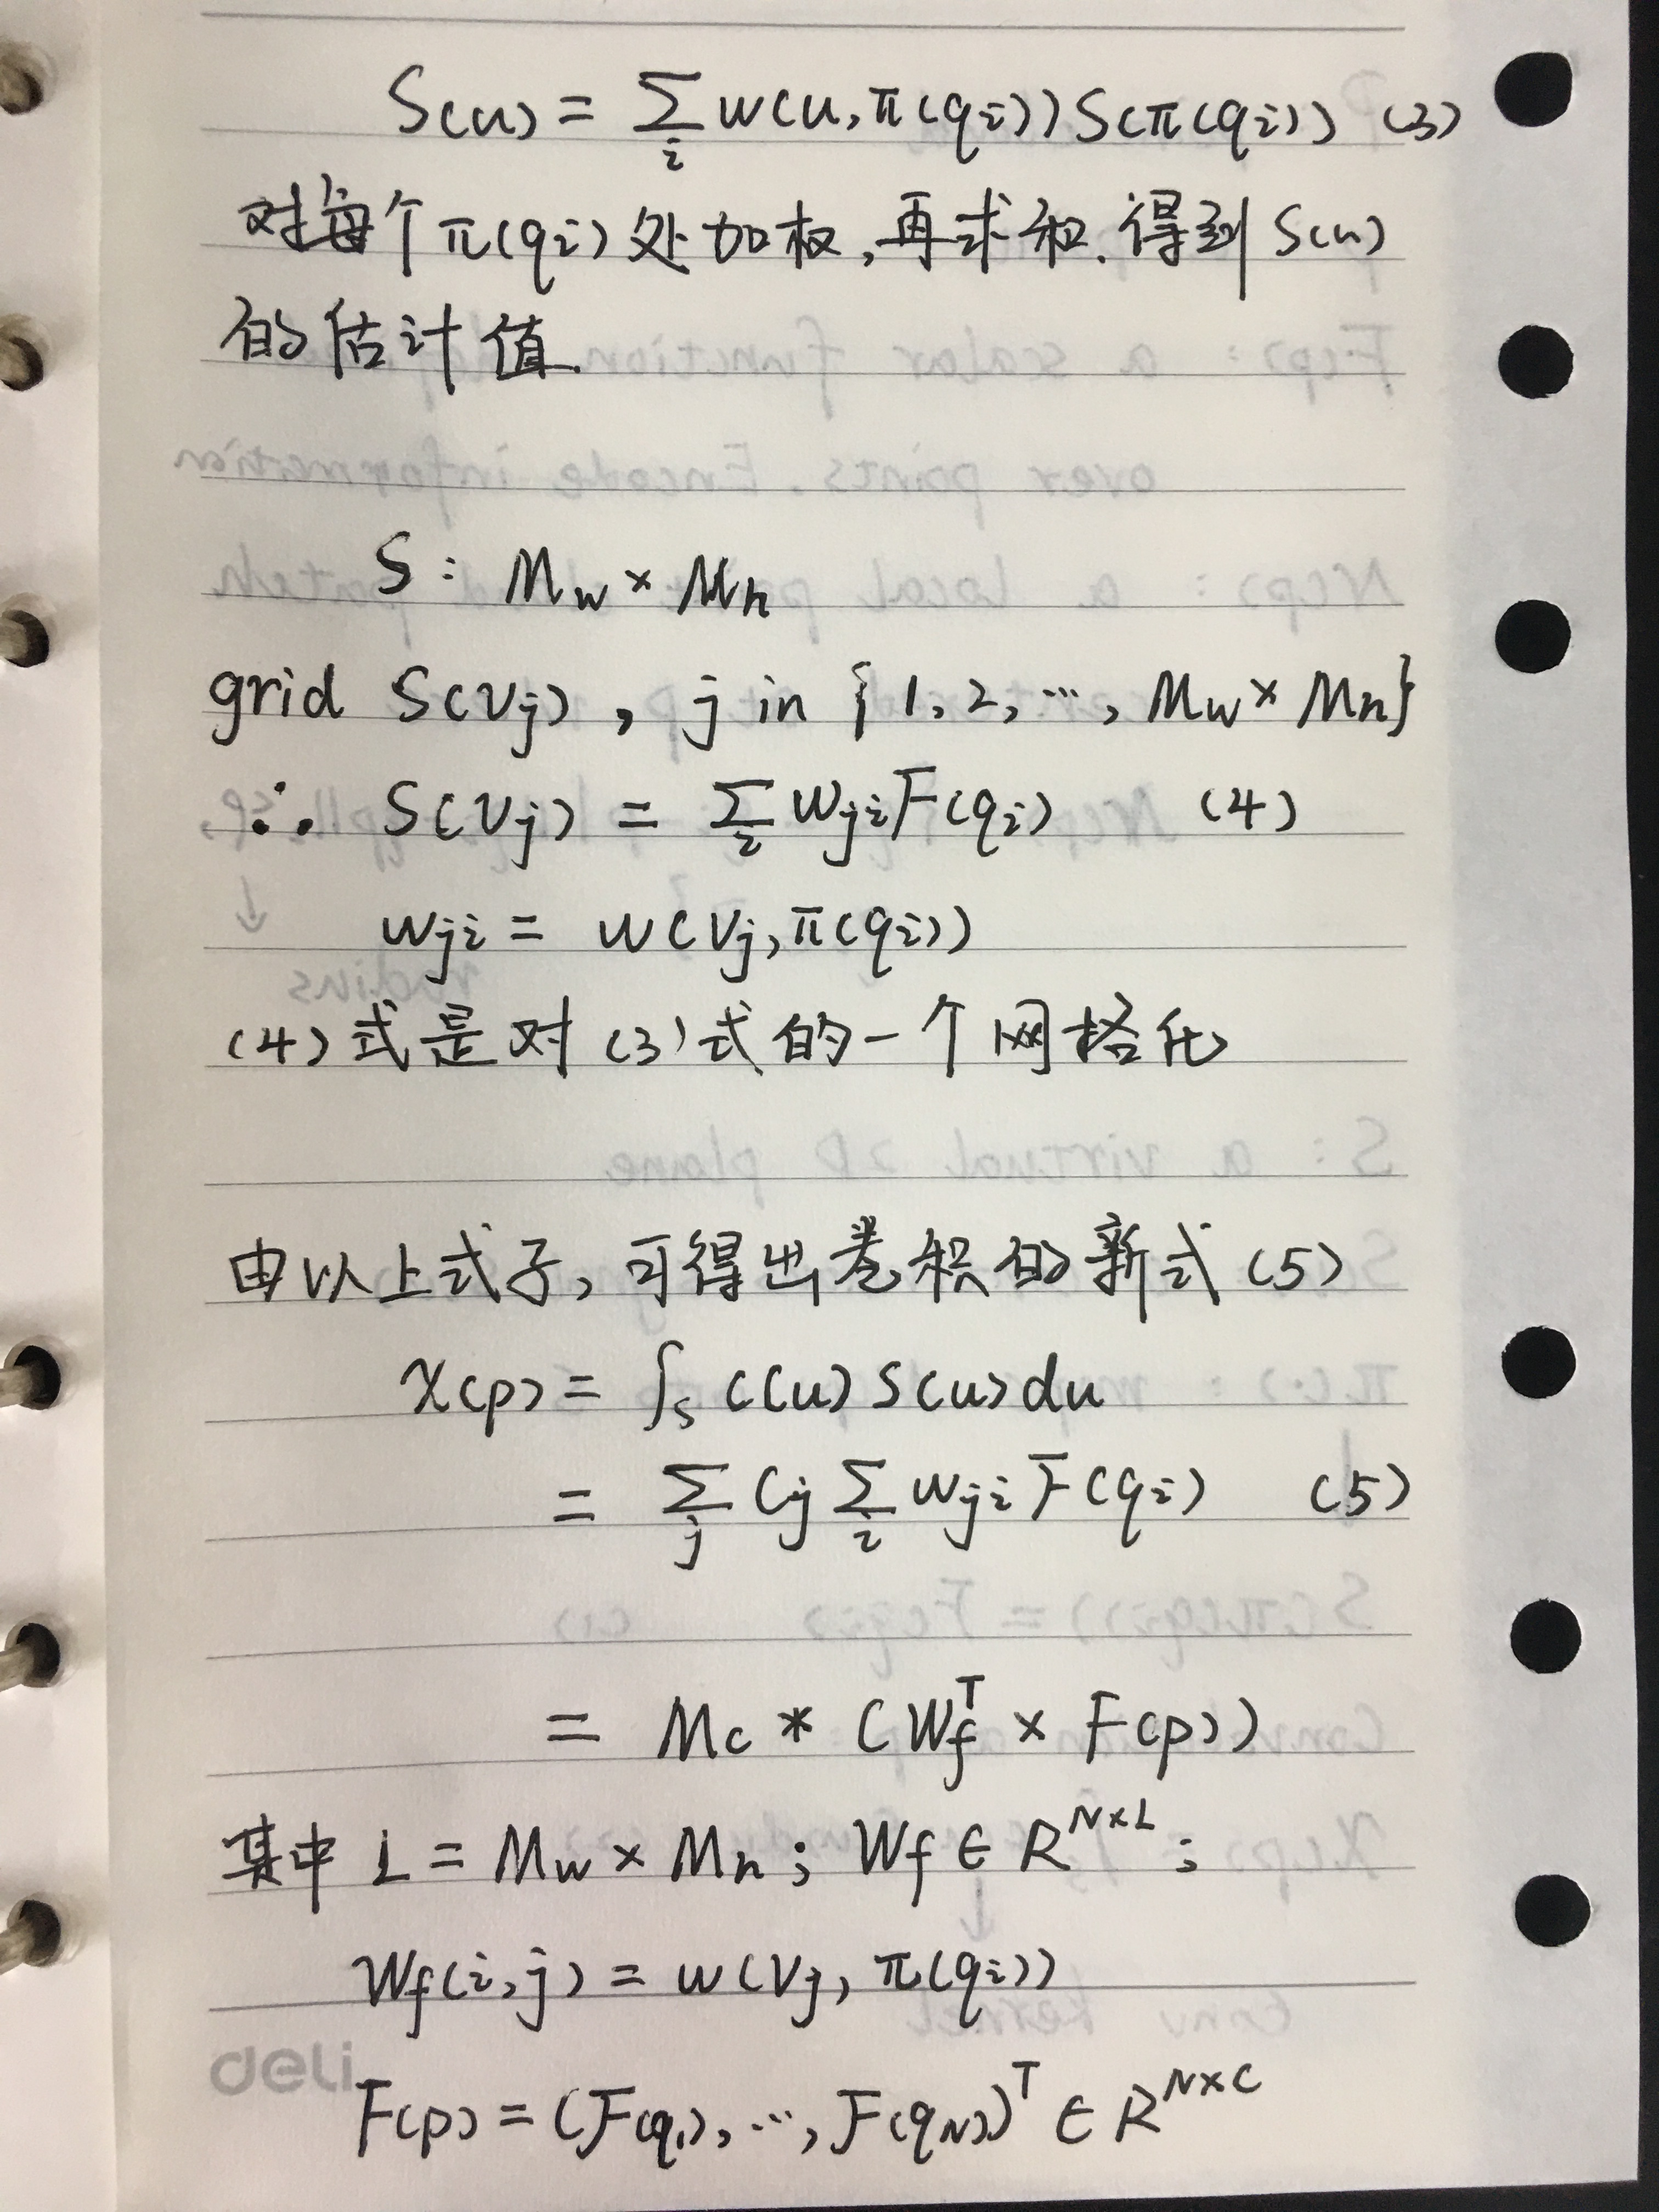 S(u) = ∑_i w(u, π(q_i)) S(π(q_i)) (3)
对每个 π(q_i) 处加权, 再求和. 得到 S(u)
的估计值.
S : M_w × M_h
grid S(v_j) , j in {1, 2, ⋯, M_w × M_h}
∴ S(v_j) = ∑_i w_{ji} F(q_i) (4)
w_{ji} = w(v_j, π(q_i))
(4) 式是对 (3) 式的一个网格化
由以上式子, 可得出卷积的新式 (5)
X(p) = ∫_S C(u) S(u) du
= ∑_j C_j ∑_i w_{ji} F(q_i) (5)
= M_c * (W_f^T × F(p))
其中 L = M_w × M_h ; W_f ∈ R^{N×L} ;
W_f(i, j) = w(v_j, π(q_i))
deli
F(p) = (F(q_1), ⋯, F(q_N))^T ∈ R^{N×C}